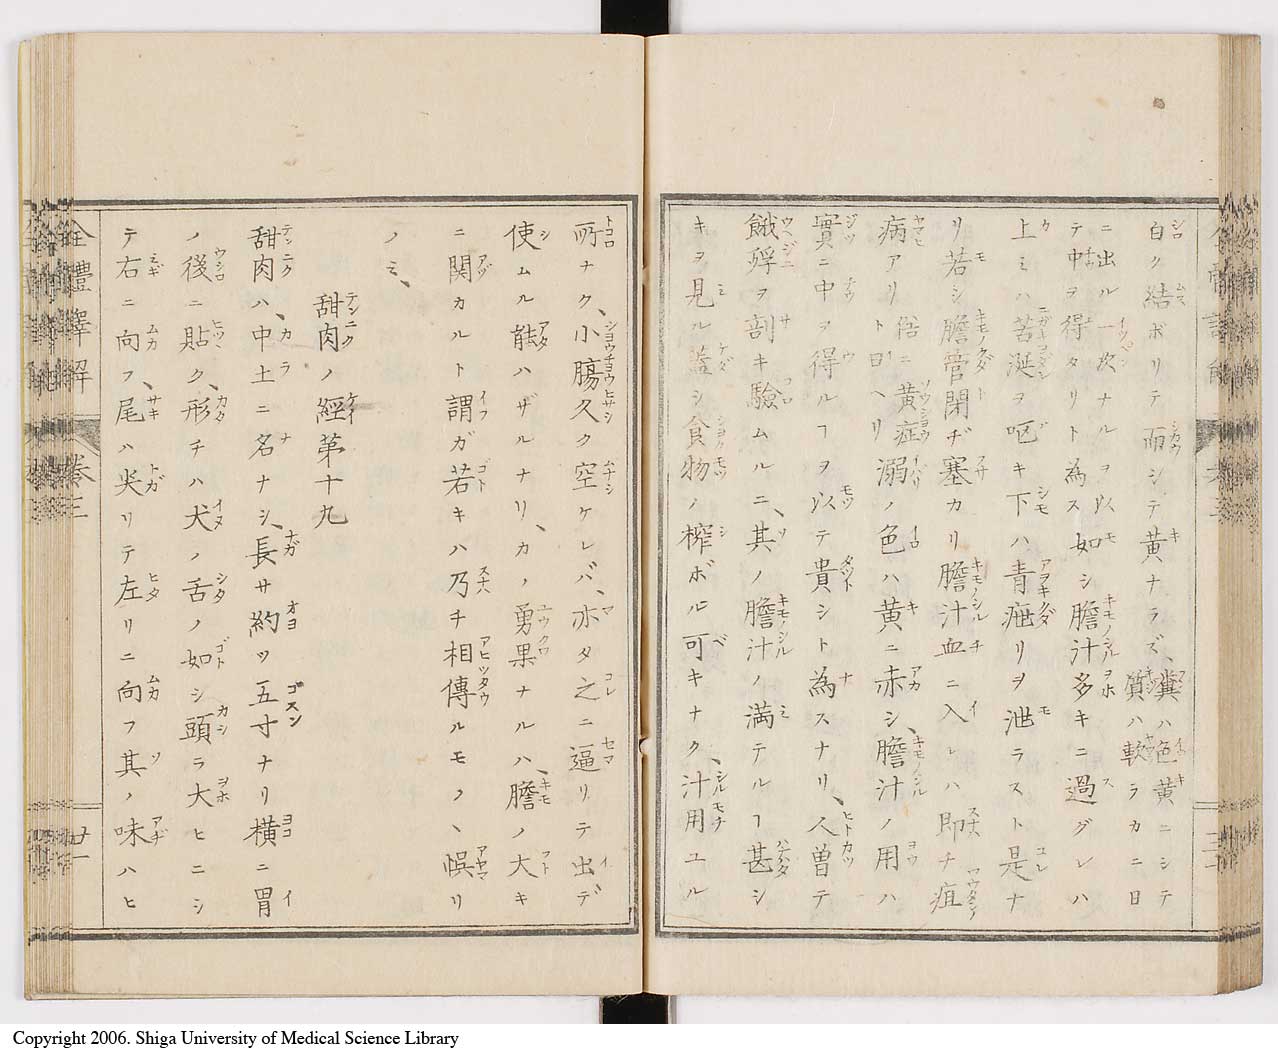 白ク結ボリテ而シテ黄ナラズ、糞ハ色黄ニシテ質ハ軟ラカニ日
ニ出ル一次ナルヲ以テ中ヲ得タリト為ス如シ膽汁多キニ過グレハ
上ミハ苦涎ヲ呕キ下ハ青疴リヲ泄ラスト是ナ
リ若シ膽管閉ヂ塞カリ膽汁血ニ入レハ即チ疸
病アリト曰ヘリ俗ニ黄症溺ノ色ハ黄ニ赤シ、膽汁ノ用ハ
實ニ中ヲ得ルヿヲ以テ貴シト為スナリ、人曽テ
餓殍ヲ剖キ驗ムルニ、其ノ膽汁ノ満テルヿ甚シ
キヲ見ル蓋シ食物ノ榨ボル可キナク、汁用ユル
所ナク、小膓久ク空ケレバ、亦タ之ニ逼リテ出デ
使ムル能ハザルナリ、カノ勇果ナルハ、膽ノ大キ
ニ関カルト謂ガ若キハ乃チ相傳ルモノヽ悞リ
ノミ、
甜肉ノ經第十九
甜肉ハ、中土ニ名ナシ、長サ約ソ五寸ナリ横ニ胃
ノ後ニ貼ク、形チハ犬ノ舌ノ如シ頭ラ大ヒニシ
テ右ニ向フ、尾ハ尖リテ左リニ向フ其ノ味ハヒ
全體譯解 巻三
廿一
Copyright 2006. Shiga University of Medical Science Library